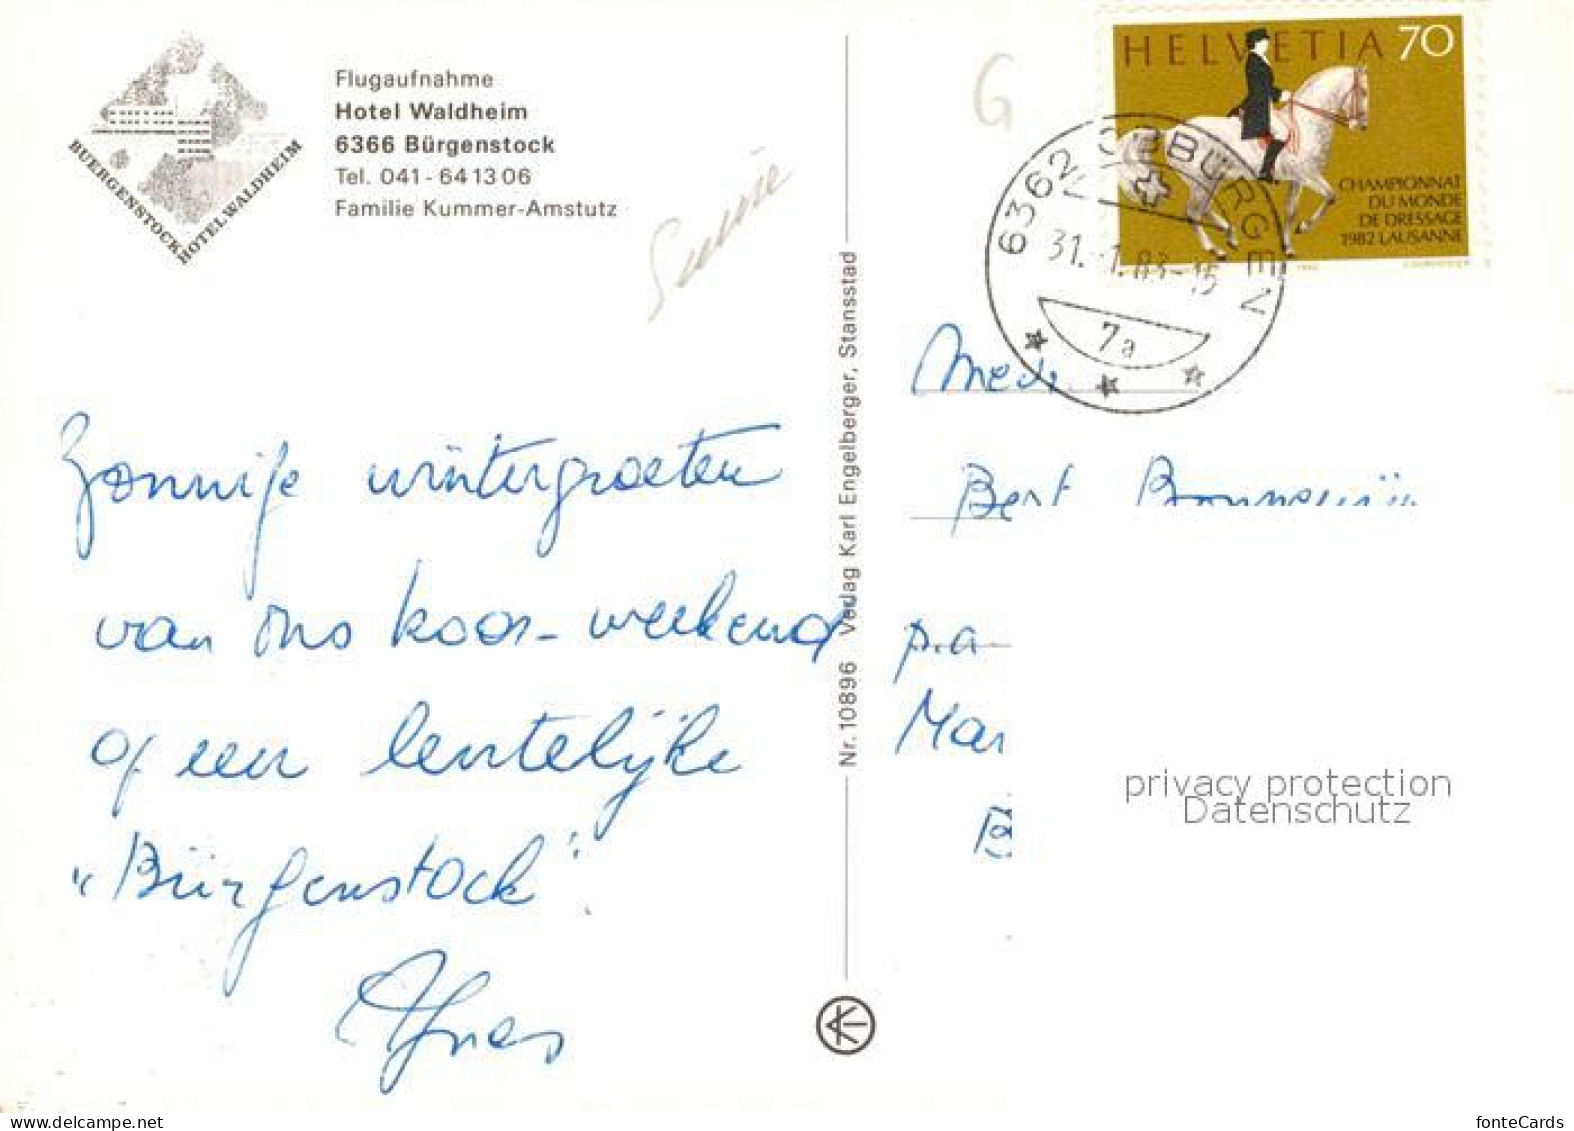 BUERGENSTOCK HOTEL WALDHEIM
Flugaufnahme
Hotel Waldheim
6366 Bürgenstock
Tel. 041 - 64 13 06
Familie Kummer-Amstutz
G
Zonnige wintergroeten
van ons koor-weekend
op een lentelijke
"Bürgenstock".
Agnes
Nr. 10896 Verlag Karl Engelberger, Stansstad
HELVETIA 70
CHAMPIONNAT
DU MONDE
DE DRESSAGE
1982 LAUSANNE
6362 OBBÜRGEN
31. 1.83-15
7a
Bert
p.a
Mar
B
privacy protection
Datenschutz
fonteCards
www.delcampe.net